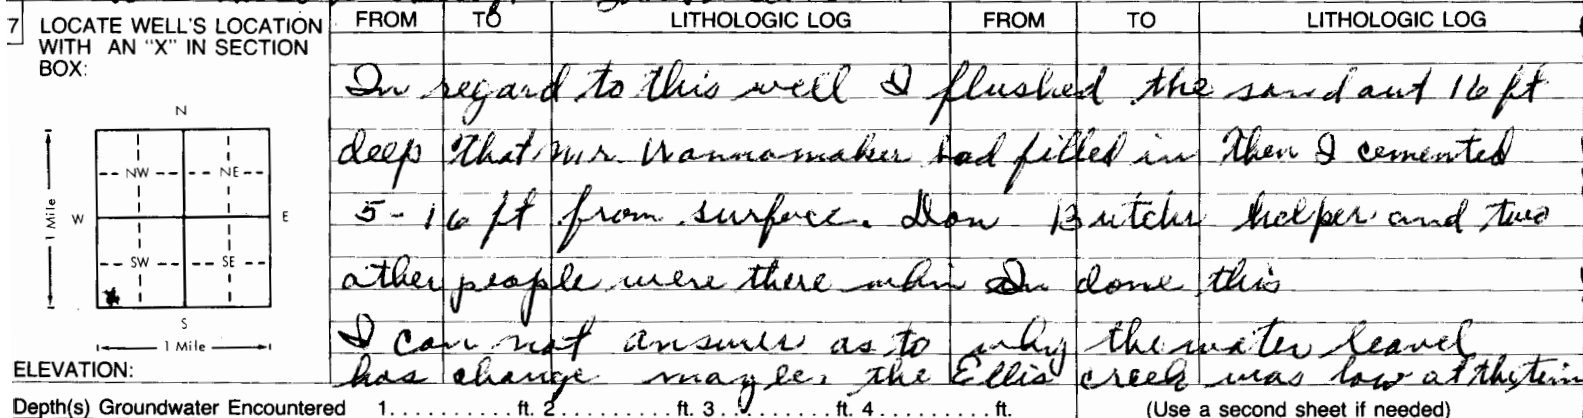 7 LOCATE WELL'S LOCATION WITH AN "X" IN SECTION BOX:
FROM TO LITHOLOGIC LOG FROM TO LITHOLOGIC LOG
In regard to this well I flushed the sand out 16 ft
deep that Mr. Wannamaker had filled in Then I cemented
5-16 ft from surface. Don Butchr helper and two
other people were there whin In done this
I can not answer as to why the water leavel
has change mayle, the Ellis creek was low at the tim
N
NW NE
W E
1 Mile
SW SE
S
1 Mile
ELEVATION:
Depth(s) Groundwater Encountered 1..........ft. 2..........ft. 3..........ft. 4..........ft. (Use a second sheet if needed)